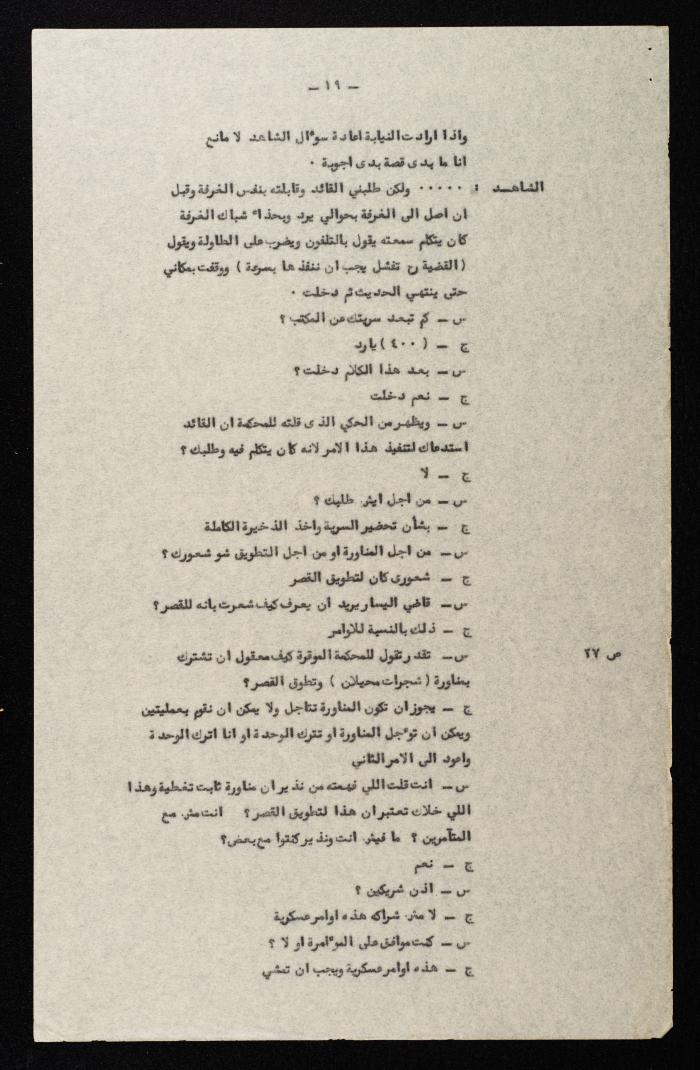 — ١٩ —
واذا ارادت النيابة اعادة سوءال الشاهد لا مانع
انا ما بدى قصة بدى اجوبة .
الشاهد : ..... ولكن طلبني القائد وقابلته بنفس الغرفة وقبل
ان اصل الى الغرفة بحوالي يرد وبحذاء شباك الغرفة
كان يتكلم سمعته يقول بالتلفون ويضرب على الطاولة ويقول
( القضية رح تفشل يجب ان ننفذها بسرعة ) ووقفت بمكاني
حتى ينتهي الحديث ثم دخلت .
س — كم تبعد سريتك عن المكتب ؟
ج — ( ٤٠٠ ) يارد
س — بعد هذا الكلام دخلت ؟
ج — نعم دخلت
س — ويظهر من الحكي الذى قلته للمحكمة ان القائد
استدعاك لتنفيذ هذا الامر لانه كان يتكلم فيه وطلبك ؟
ج — لا
س — من اجل ايش طلبك ؟
ج — بشأن تحضير السرية واخذ الذخيرة الكاملة
س — من اجل المناورة او من اجل التطويق شو شعورك ؟
ج — شعورى كان لتطويق القصر
س — قاضي اليسار يريد ان يعرف كيف شعرت بانه للقصر ؟
ج — ذلك بالنسبة للاوامر
س — تقدر تقول للمحكمة الموقرة كيف معقول ان تشترك
ص ٢٧
بمناورة ( شجرات محيلان ) وتطوق القصر ؟
ج — يجوز ان تكون المناورة تتاجل ولا يمكن ان نقوم بعمليتين
ويمكن ان توءجل المناورة او تترك الوحدة او انا اترك الوحدة
واعود الى الامر الثاني
س — انت قلت اللي فهمته من نذير ان مناورة ثابت تغطية وهذا
اللي خلاك تعتبر ان هذا لتطويق القصر ؟ انت مش مع
المتآمرين ؟ ما فيش انت ونذير كنتوا مع بعض ؟
ج — نعم
س — اذن شريكين ؟
ج — لا مش شراكه هذه اوامر عسكرية
س — كنت موافق على الموءامرة او لا ؟
ج — هذه اوامر عسكرية ويجب ان تمشي